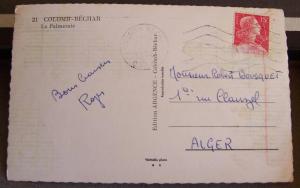 21 COLOMB-BÉCHAR
La Palmeraie
Bons baisers
Roger
Edition ARGENCE - Colomb-Béchar
Véritable photo
Monsieur Robert Bousquet
1 rue Clauzel
ALGER